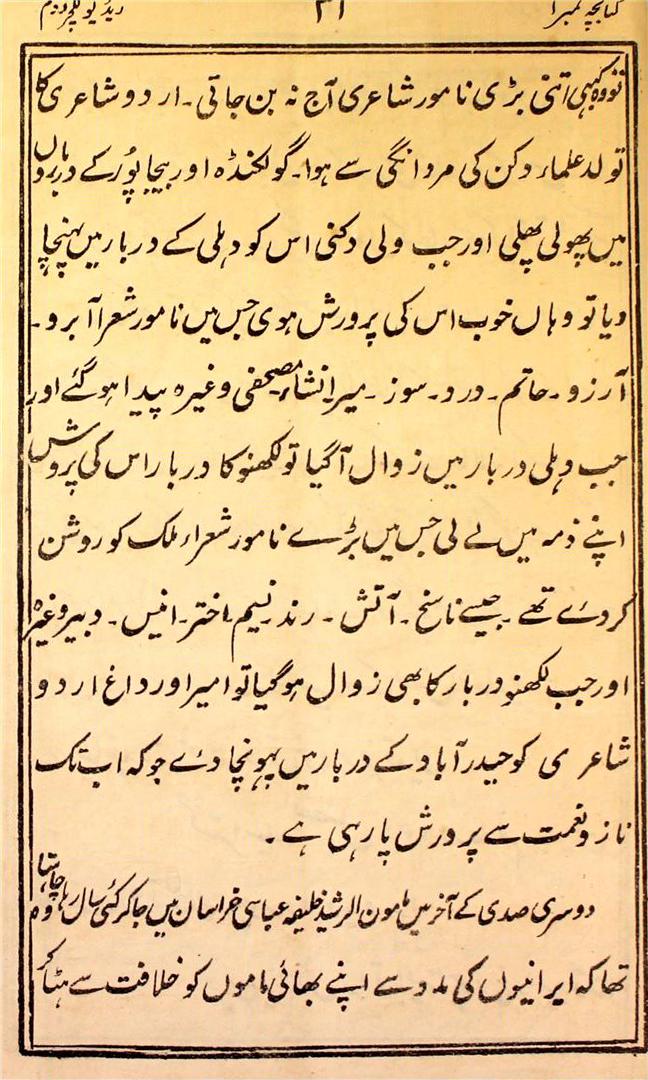 کتابچہ نمبر ۱ ۳۱ ریڈیو لکچر دوم
تو وہ کبھی اتنی بڑی نامور شاعری آج نہ بن جاتی۔ اردو شاعری کا
تولد علماء دکن کی مردانگی سے ہوا۔ گولکنڈہ اور بیجاپور کے درباروں
میں پھولی پھلی اور جب ولی دکنی اس کو دہلی کے دربار میں پہنچا
دیا تو وہاں خوب اس کی پرورش ہوی جس میں نامور شعرا آبرو۔
آرزو۔ حاتم۔ درد۔ سوز۔ میر انشاء مصحفی وغیرہ پیدا ہو گئے اور
جب دہلی دربار میں زوال آگیا تو لکھنو کا دربار اس کی پرورش
اپنے ذمہ میں لے لی جس میں بڑے نامور شعراء ملک کو روشن
کردے تھے۔ جیسے ناسخ۔ آتش۔ رند۔ نسیم۔ اختر۔ انیس۔ دبیر وغیرہ
اور جب لکھنو دربار کا بھی زوال ہو گیا تو امیر اور داغ اردو
شاعری کو حیدرآباد کے دربار میں پہونچا دے جو کہ اب تک
ناز و نعمت سے پرورش پا رہی ہے۔
دوسری صدی کے آخر میں مامون الرشید خلیفہ عباسی خراسان میں جا کر کئی سال رہا وہ چاہتا
تھا کہ ایرانیوں کی مدد سے اپنے بھائی ماموں کو خلافت سے ہٹا کر